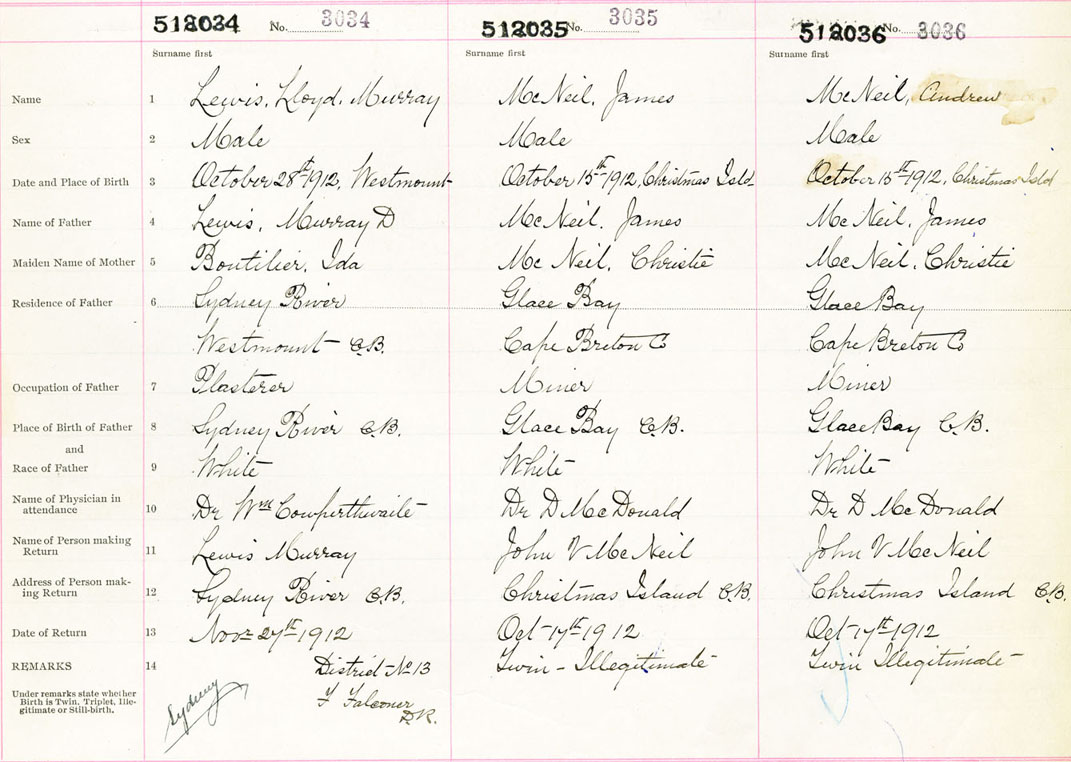 512034 No. 3034 512035 No. 3035 512036 No. 3036
Surname first Surname first Surname first
Name 1 Lewis, Lloyd, Murray McNeil, James McNeil, Andrew
Sex 2 Male Male Male
Date and Place of Birth 3 October 28th 1912, Westmount October 15th 1912, Christmas Isld October 15th 1912, Christmas Isld
Name of Father 4 Lewis, Murray D McNeil, James McNeil, James
Maiden Name of Mother 5 Boutilier, Ida McNeil, Christie McNeil, Christie
Residence of Father 6 Sydney River Glace Bay Glace Bay
Westmount C.B. Cape Breton Co Cape Breton Co
Occupation of Father 7 Plasterer Miner Miner
Place of Birth of Father 8 Sydney River C.B. Glace Bay C.B. Glace Bay C.B.
and
Race of Father 9 White White White
Name of Physician in
attendance 10 Dr Wm Cowperthwaite Dr D McDonald Dr D McDonald
Name of Person making
Return 11 Lewis Murray John V McNeil John V McNeil
Address of Person mak-
ing Return 12 Sydney River C.B. Christmas Island C.B. Christmas Island C.B.
Date of Return 13 Nov 27th 1912 Oct 17th 1912 Oct 17th 1912
REMARKS 14 District No 13 Twin - Illegitimate Twin Illegitimate
Under remarks state whether
Birth is Twin, Triplet, Ille-
gitimate or Still-birth.
F Falconer
D.R.
Sydney